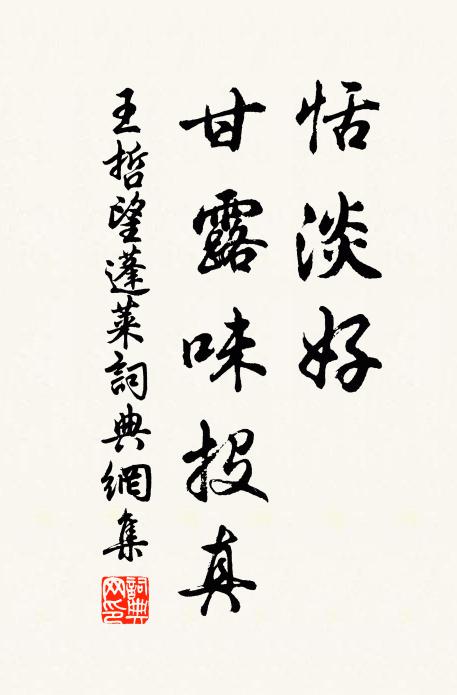 恬淡好
甘露味投真
王哲望蓬萊詞典網集
詞典网印